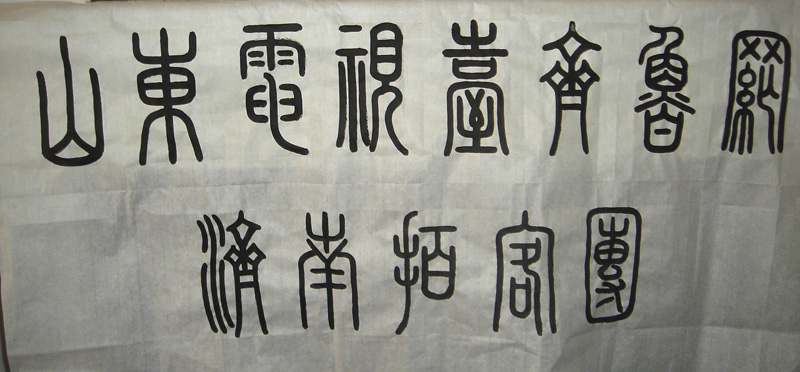 山東電視臺齊魯網
濟南拍客團